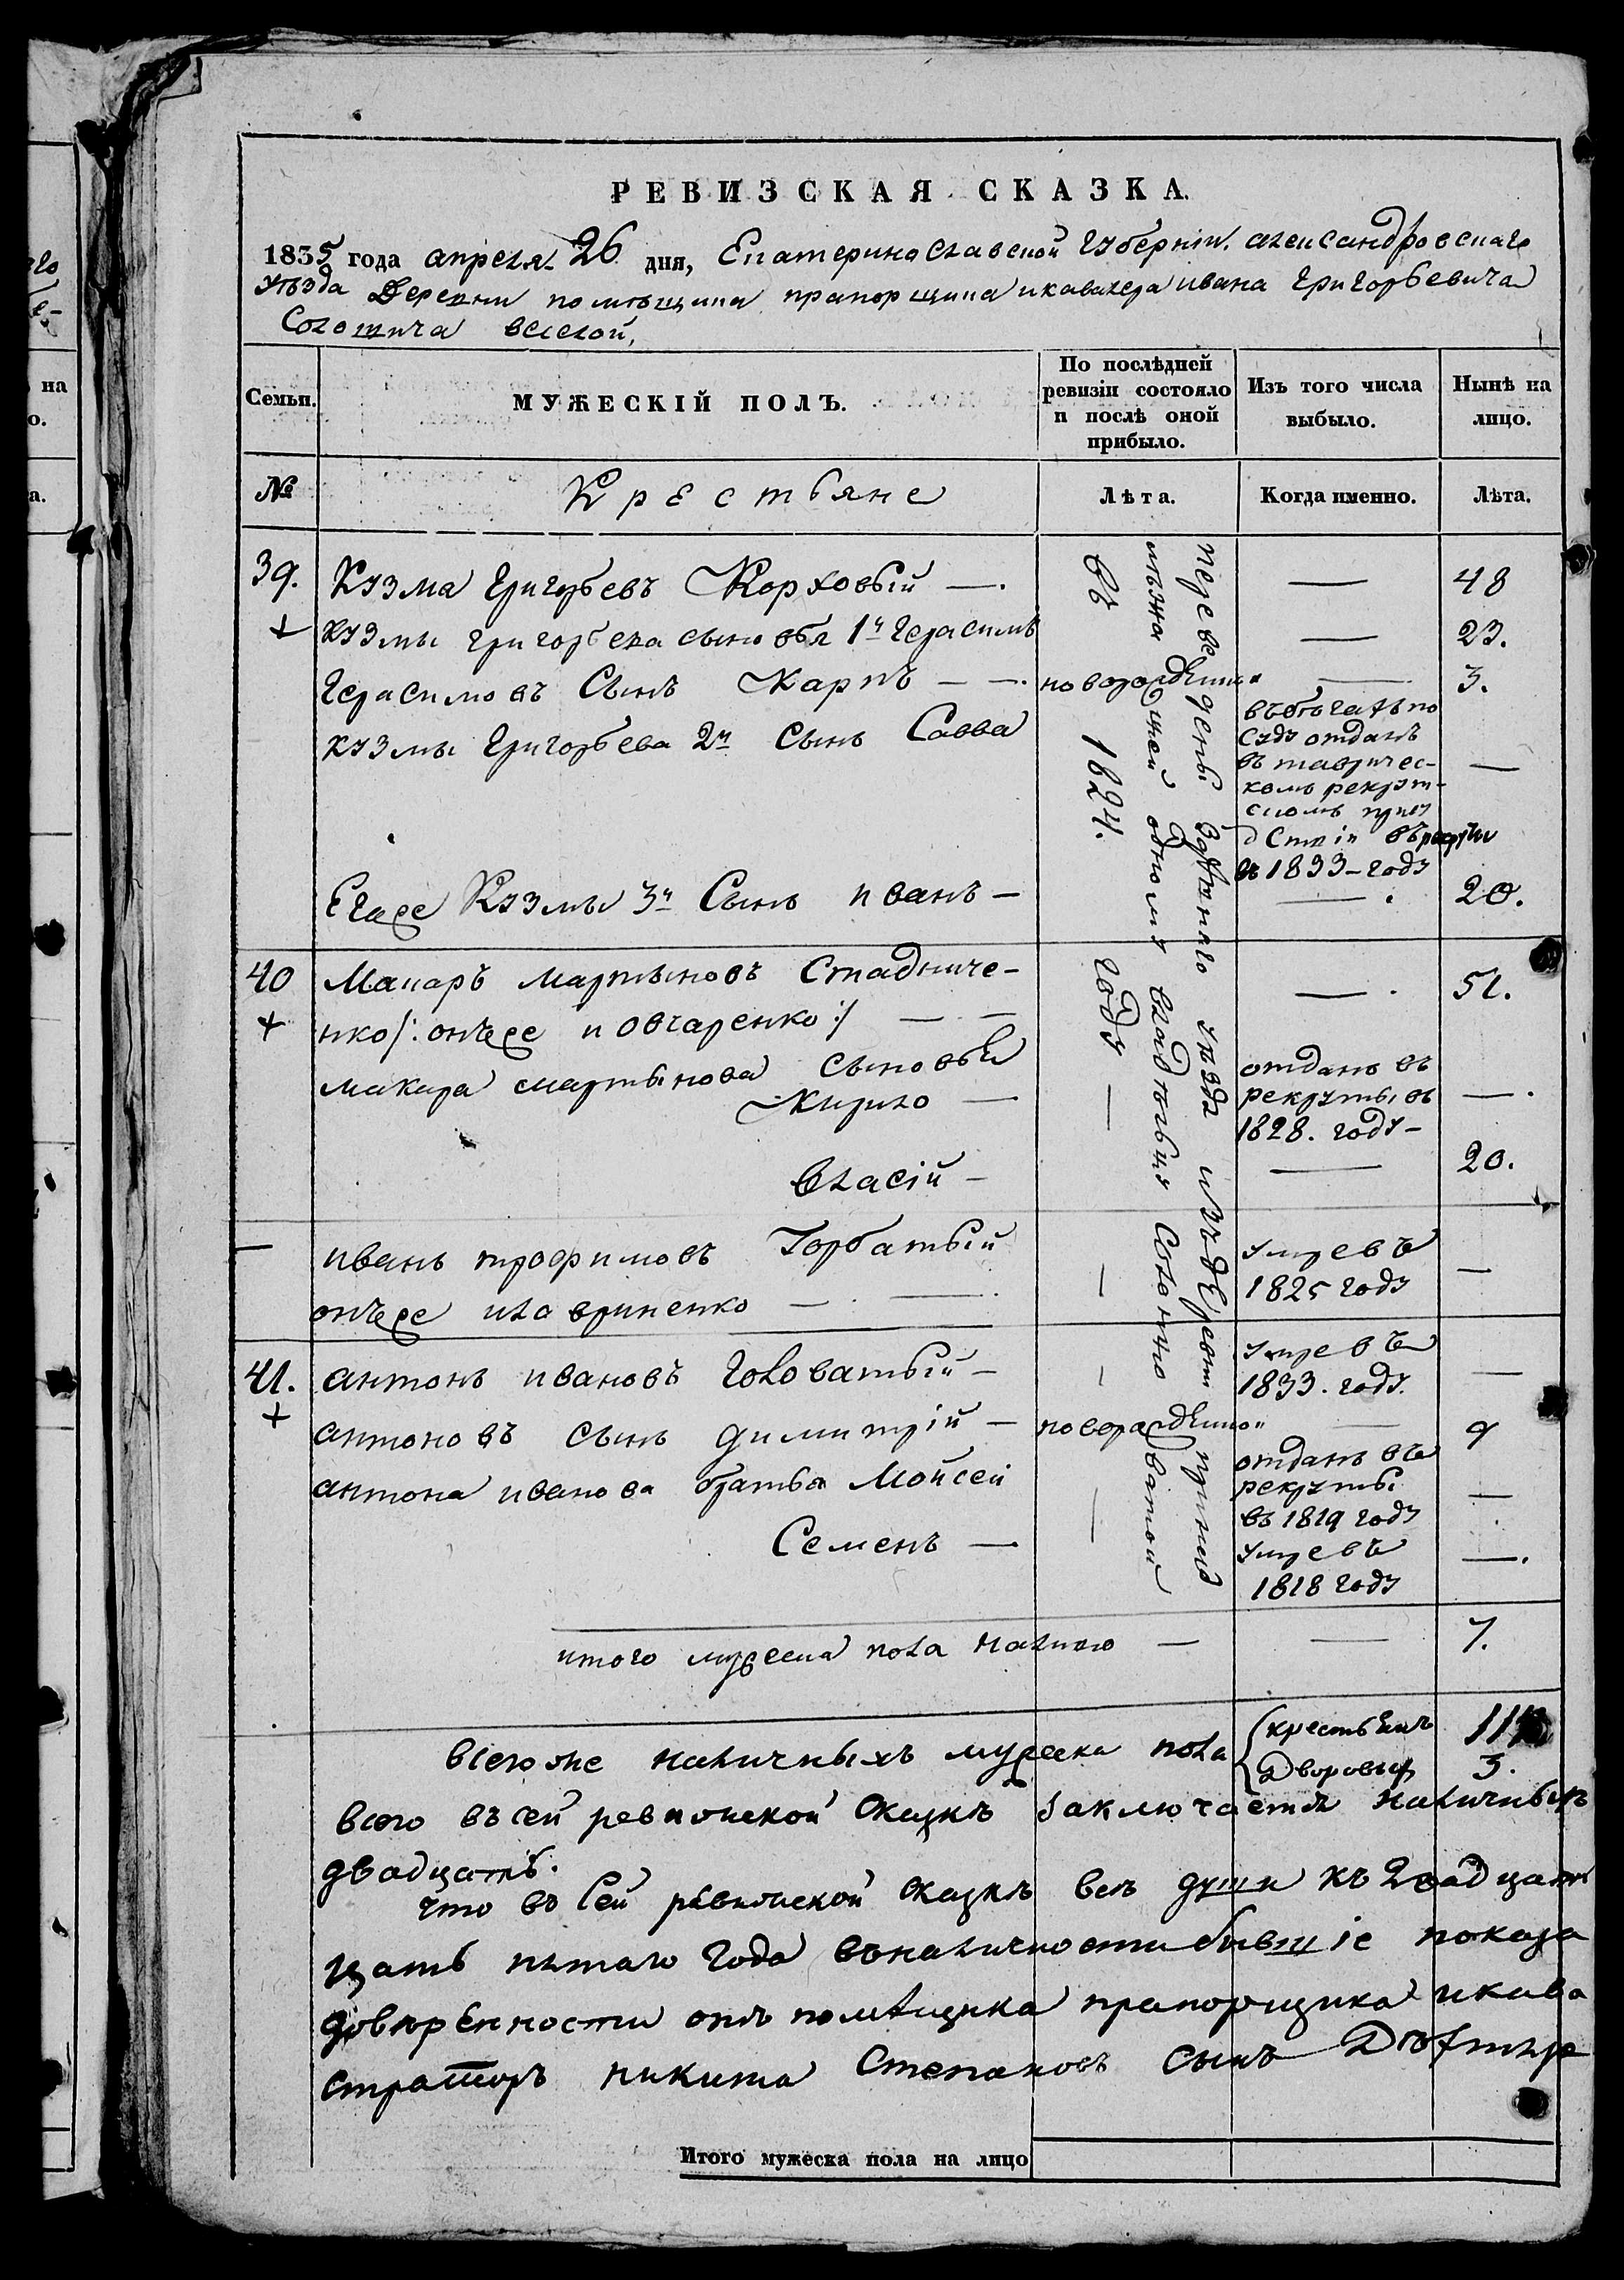 РЕВИЗСКАЯ СКАЗКА.
1835 года апреля 26 дня, Екатеринославской Губерніи. александровскаго
уѣзда Деревни помѣщика прапорщика и кавалера ивана Григорьевича
мужеской
на
о.
а.
Семьи.
МУЖЕСКІЙ ПОЛЪ.
По послѣдней ревизіи состояло и послѣ оной прибыло.
Изъ того числа выбыло.
Нынѣ на лицо.
№
Крестьяне
Лѣта.
Когда именно.
Лѣта.
39. Кузма Григорьевъ Коржовый — — 48
+ кузмы григорьева сыновья 1й Герасимъ — 23.
Герасимовъ Сынъ Карпъ — — новорожденн — 3.
кузмы Григорьева 2й Сынъ Савва
въ
суду отданъ
въ тавричес-
комъ рекрут-
скомъ
въ 1833-году
—
Егоже Кузмы 3й Сынъ иванъ — — 20.
въ 1824. году —
уѣзда изъ деревни
40 Макаръ мартыновъ Стадниче- — 51.
+ нко /: онъже и овчаренко :/ — —
макара мартынова сыновья
Кирило —
отданъ въ
рекруты въ
1828. году —
—
власій — — 20.
— иванъ трофимовъ Горбатый
онъже и лавриненко — —
—
умре въ
1825 году
—
41. антонъ ивановъ Головатый —
—
умре въ
1833. году.
—
+ антоновъ сынъ димитрій — новорожденной — 9
антона иванова братья Мойсей
отданъ въ
рекруты
въ 1819 году
—
Семенъ — —
умре въ
1818 году
—
итого мужеска пола налицо — — 7.
всегоже наличныхъ мужеска пола
крестьянъ 11
Дворовыхъ 3.
всего въ сей ревижской сказкѣ заключается наличныхъ
двадцать.
что въ сей ревижской сказкѣ всѣ души къ
цать пятаго года въ наличности бывшіе показа
довѣренности отъ помѣщика прапорщика и кава
страторъ никита Степановъ сынъ
Итого мужеска пола на лицо